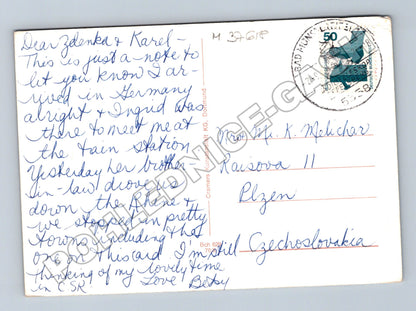 M 37618
Dear Zdenka & Karel -
This is just a note to
let you know I ar-
rived in Germany
alright & Ingrid was
there to meet me at
the train station.
Yesterday her brother-
in-law drove us
down the Rhine &
we stopped in pretty
towns including that
on this card. I'm still
thinking of my lovely time
in ČSR. Love Betsy
50
Mr. K. Melichar
Kaisova 11
Plzen
Czechoslovakia
POHLEDNICE-GALERIE